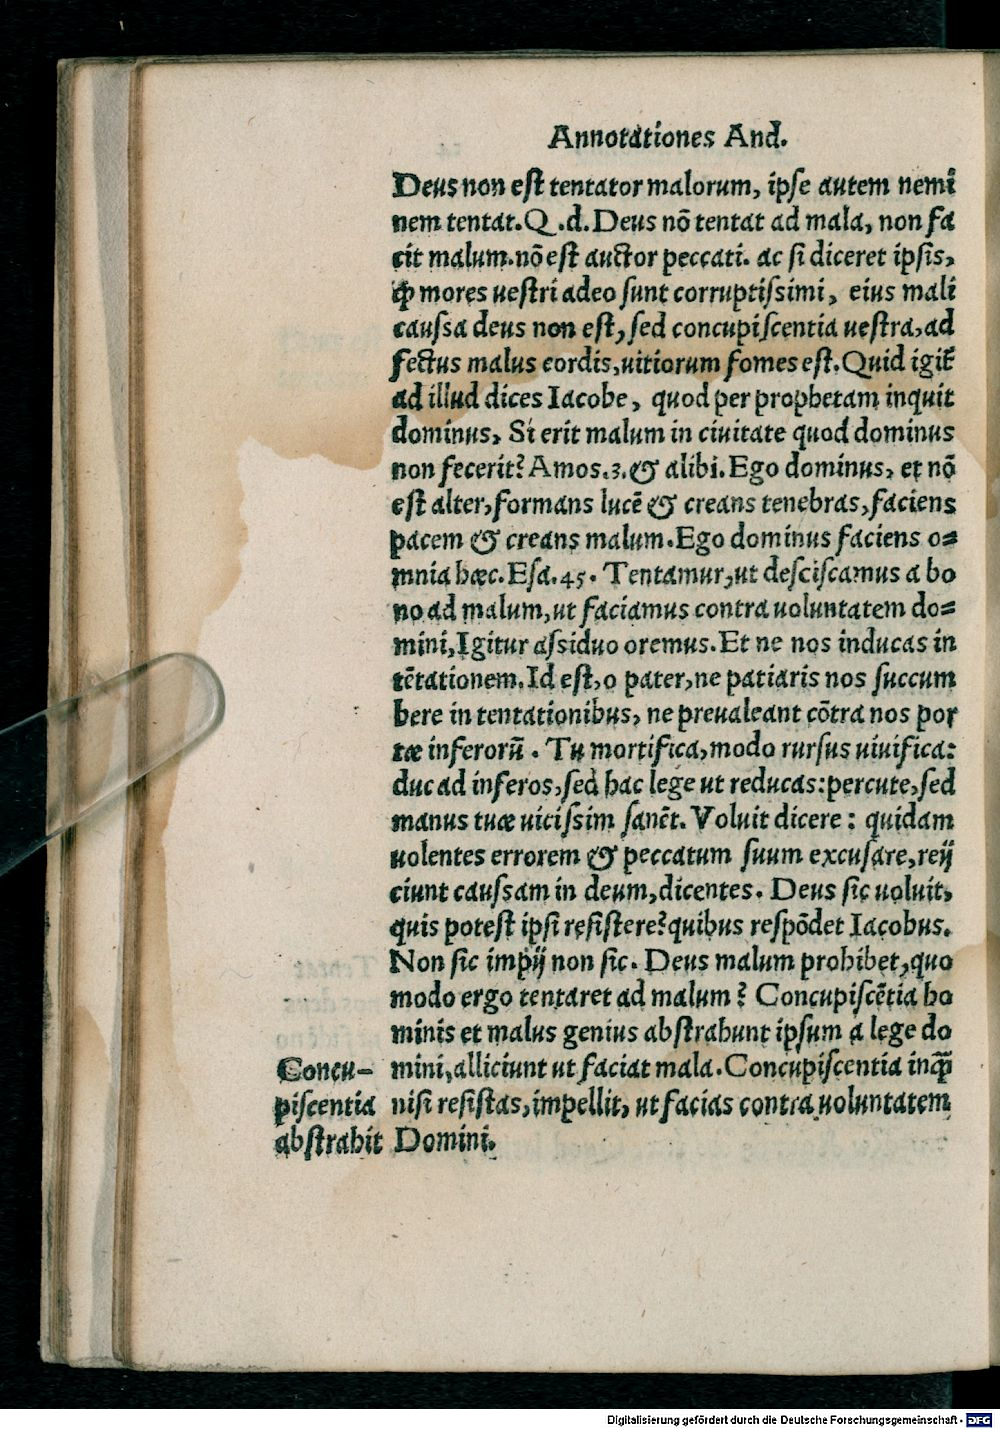 Annotationes And.
Deus non est tentator malorum, ipse autem nemi
nem tentat. Q.d. Deus nõ tentat ad mala, non fa
cit malum. nõ est auctor peccati. ac si diceret ipsis,
ꝙ mores uestri adeo sunt corruptissimi, eius mali
caussa deus non est, sed concupiscentia uestra, ad
fectus malus cordis, uitiorum fomes est. Quid igit᷑
ad illud dices Iacobe, quod per prophetam inquit
dominus, Si erit malum in ciuitate quod dominus
non fecerit? Amos.3. & alibi. Ego dominus, et nõ
est alter, formans lucẽ & creans tenebras, faciens
pacem & creans malum. Ego dominus faciens o=
mnia hæc. Esa. 45. Tentamur, ut desciscamus a bo
no ad malum, ut faciamus contra uoluntatem do=
mini, Igitur assiduo oremus. Et ne nos inducas in
tẽtationem. Id est, o pater, ne patiaris nos succum
bere in tentationibus, ne preualeant cõtra nos por
tæ inferorũ. Tu mortifica, modo rursus uiuifica:
duc ad inferos, sed hac lege ut reducas: percute, sed
manus tuæ uicissim sanẽt. Voluit dicere: quidam
uolentes errorem & peccatum suum excusare, reij
ciunt caussam in deum, dicentes. Deus sic uoluit,
quis potest ipsi resistere? quibus respõdet Iacobus.
Non sic impij non sic. Deus malum prohibet, quo
modo ergo tentaret ad malum? Concupiscẽtia ho
minis et malus genius abstrahunt ipsum a lege do
mini, alliciunt ut faciat mala. Concupiscentia inꝗ̃
nisi resistas, impellit, ut facias contra uoluntatem
Domini.
Concu-
piscentia
abstrahit
Digitalisierung gefördert durch die Deutsche Forschungsgemeinschaft - DFG